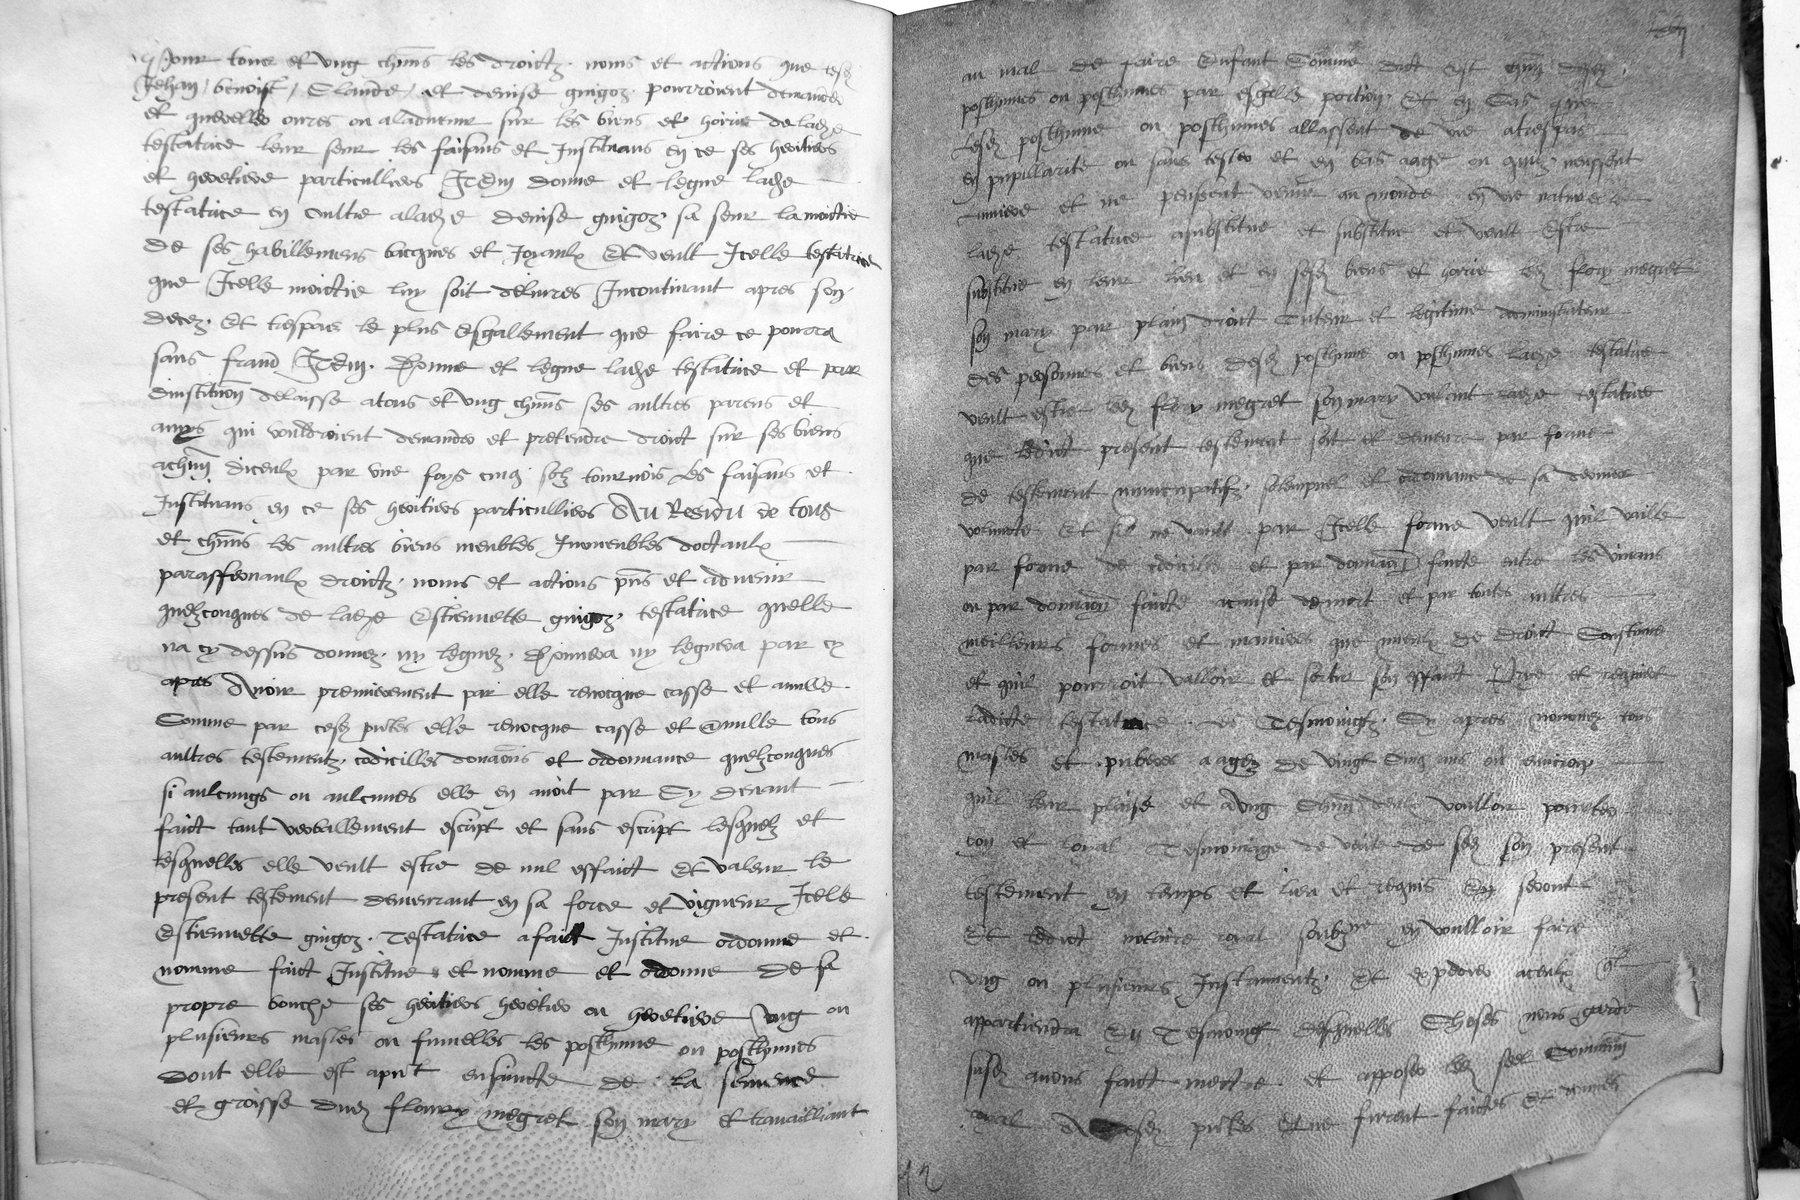 pour tous et ung chms les droictz noms et actions que lesd
Jehan / benoist / Claude / et denise guigoz pourroient demander
et quereller ores ou aladvenir sur les biens et hoirie de lade
testatrice leur seur les faisans et Instituans en ce ses heritiers
et heretiere particulliers Item donne et legue lade
testatrice en oultre alade denise guigoz sa seur la moictie
de ses habillemens bacgues et Joyaulx Et veult Icelle testatrice
que Icelle moictie luy soit delivres Incontinant apres son
decez Et trespas le plus esgallement que faire ce pourra
sans fraud Item Donne et legue lade testatrice et par
dinstitution delaisse atous et ung chms ses aultres parens et
amys qui vouldroient demander et pretendre droict sur ses biens
achun diceulx par une foys cinq solz tournois Les faisans et
Instituans en ce ses heritiers particulliers Au Residu de tous
et chms les aultres biens meubles Inmeubles doctaulx
paraffernaulx droictz noms et actions pns et advenir
quelzconques de lade Estiennette guigoz testatrice quelle
na cy dessus donnez ny leguez Donnera ny leguera par cy
apres Avoir premierement par elle revocque casse et anulle
Comme par cesd pntes elle revocque casse et anulle tous
aultres testementz codicilles donaons et ordonnance quelzconques
si aulcungs ou aulcunes elle en avoit par Cy devant
faict tant verballement escript et sans escript lesquelz et
lesquelles elle veult estre de nul effaict Et valeur le
present testement demeurant en sa force et vigueur Icelle
Estiennette guigoz Testatrice a faict Institue ordonne et
nomme faict Institue et nomme et ordonne De sa
propre bouche ses heritiers heretier ou heretiere ung ou
plusieurs masles ou fumelles les posthume ou posthumes
dont elle est apnt ensaincte de la semence
et groisse dud floury megret son mary Et travailliant
au mal de faire Enfant Comme dict est
posthumes ou posthumes par esgalle portion Et en Cas que
lesd posthume ou posthumes allassent de vie atrespas
en pupillarite ou sans tester et en bas aage ou quilz neussent
et ne peussent venir au monde en vie naturelle
lade testatrice asubstitue et substitue et veult Estre
substitue en leur lieu et en sesd biens et hoirie led flory megret
son mary par plain droict Tuteur et legitime administrateur
des personnes et biens desd posthume ou posthumes lade testatrice
veult estre led flory megret son mary voulant lade testatrice
que ledict present testement soit et demeure par forme
de testement nuncupatifz et ordonnance de sa derniere
volunte Et se ne vault par Icelle forme veult quil vaille
par forme de codicille et par donaon faicte entre les vivans
ou par donaon faicte acause de mort et par toutes aultres
meilleurs formes et manieres que mieulx de droict Coustume
et quil pourroit valloir et sortir son effaict Prye et requiert
ladicte testatrice es Tesmoingz Cy apres nommez tous
masles et puberes aagez de vingt cinq ans ou environ
quil leur plaise et a ung chun deulx voulloir pourter
bon et loyal Tesmoinage de verite de sed son present
testement en temps et lieu et requis En seront
Et ledict notaire royal soubzne en voulloir faire
ung ou plusieurs Instrumentz Et expedier aceulx ql
appartiendra En Tesmoing desquelles Choses nous garde
susd avons faict mectre et apposer led seel Commun
royal A cesd pntes Que furent faictes Et donnees